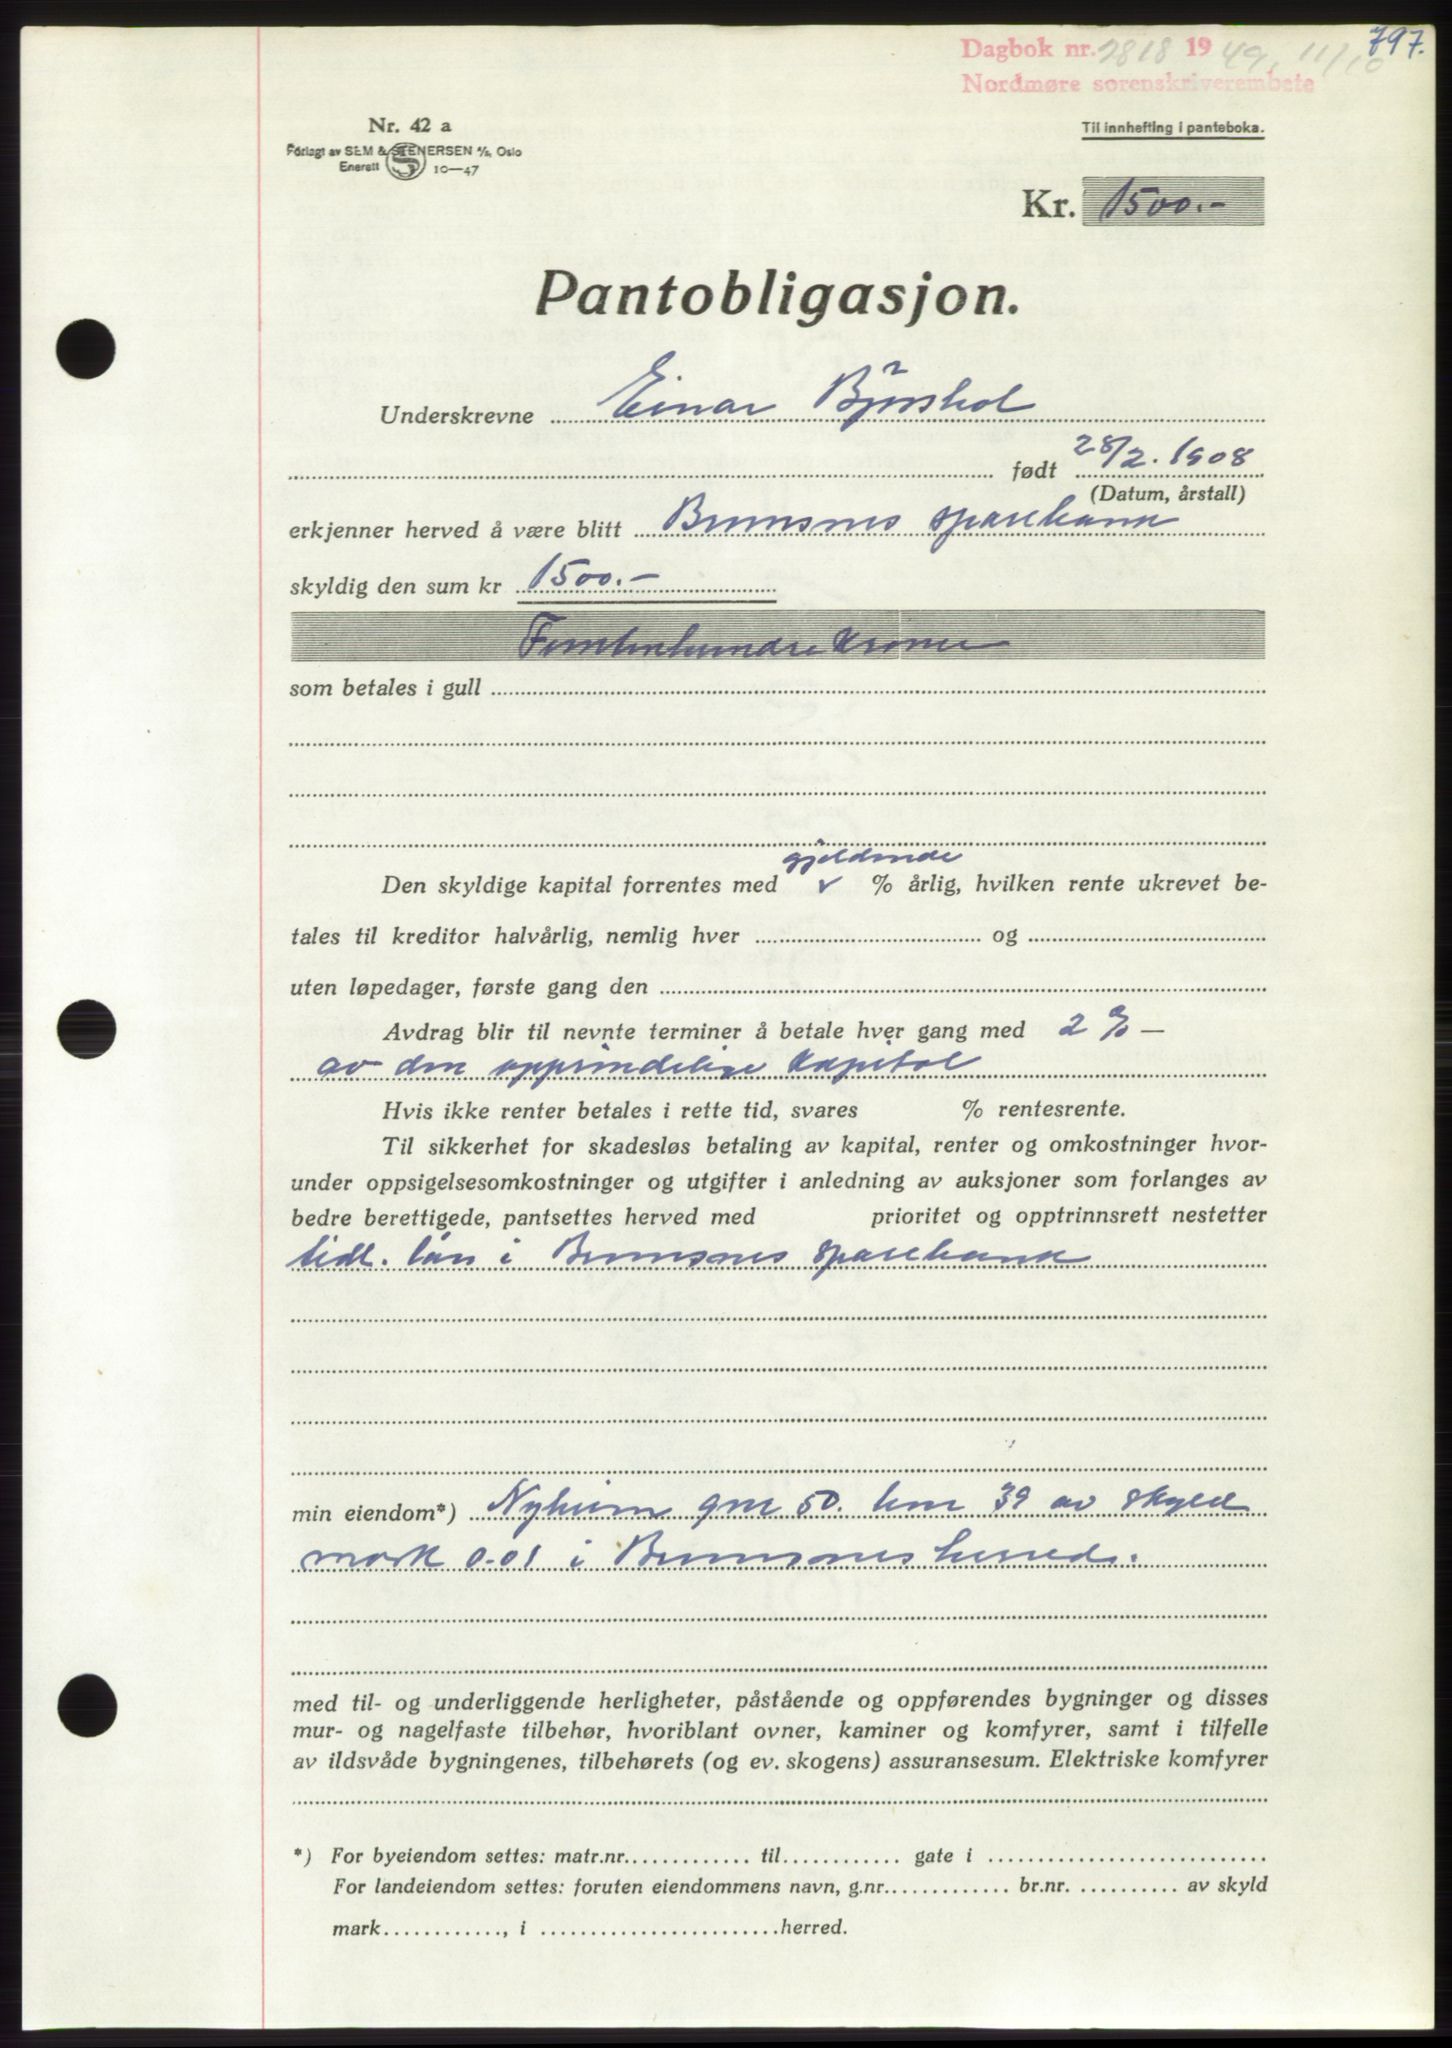 797.
Dagbok nr. 2818 1949, 11/10
Nordmøre sorenskriverembete
Nr. 42 a
Til innhefting i panteboka.
Forlagt av SEM & STENERSEN A/S, Oslo
Enerett 10—47
Kr. 1500.-
Pantobligasjon.
Underskrevne Einar Bjørshol
født 28/2. 1908
(Datum, årstall)
erkjenner herved å være blitt Bremsnes sparebank
skyldig den sum kr 1500.-
Femtenhundre kroner
som betales i gull
gjeldende
Den skyldige kapital forrentes med v % årlig, hvilken rente ukrevet be-
tales til kreditor halvårlig, nemlig hver og
uten løpedager, første gang den
Avdrag blir til nevnte terminer å betale hver gang med 2 % —
av den opprindelige kapital
Hvis ikke renter betales i rette tid, svares % rentesrente.
Til sikkerhet for skadesløs betaling av kapital, renter og omkostninger hvor-
under oppsigelsesomkostninger og utgifter i anledning av auksjoner som forlanges av
bedre berettigede, pantsettes herved med prioritet og opptrinnsrett nestetter
tidl. lån i Bremsnes sparebank
min eiendom*) Nyheim gnr 50. bnr 39 av skyld
mark 0-01 i Bremsnes herred.
med til- og underliggende herligheter, påstående og oppførendes bygninger og disses
mur- og nagelfaste tilbehør, hvoriblant ovner, kaminer og komfyrer, samt i tilfelle
av ildsvåde bygningenes, tilbehørets (og ev. skogens) assuransesum. Elektriske komfyrer
*) For byeiendom settes: matr.nr. til gate i
For landeiendom settes: foruten eiendommens navn, g.nr. br.nr. av skyld
mark, i herred.